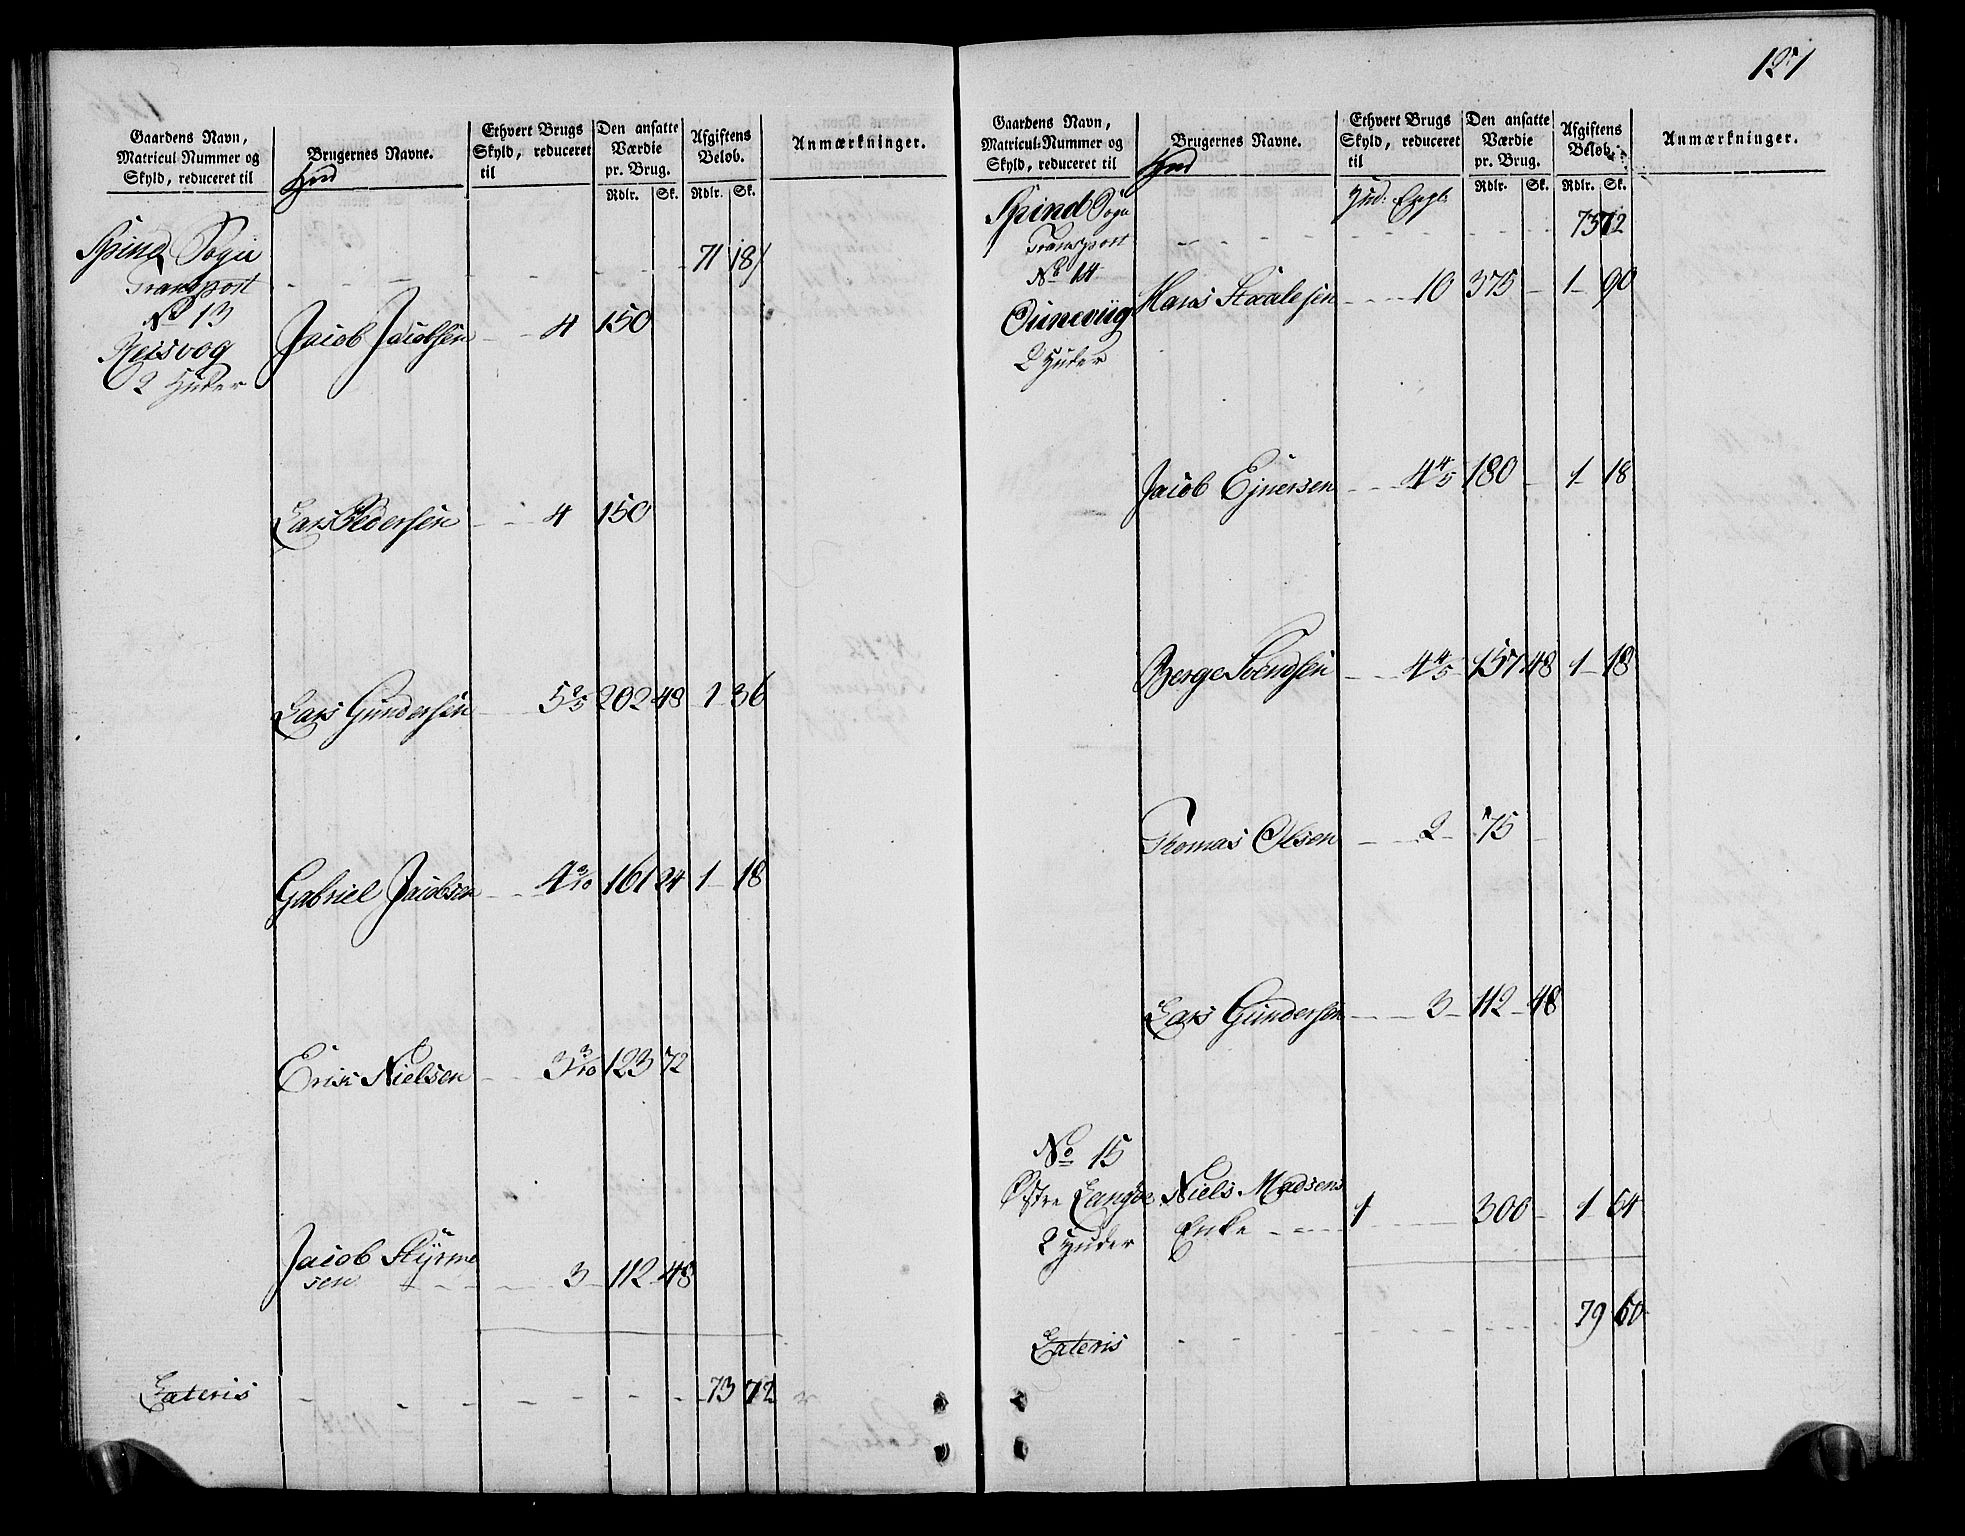 Gaardens Navn,
Matricul-Nummer og
Skyld, reduceret til
Brugernes Navne.
Ethvert Brugs
Skyld, reduceret
til
Den ansatte
Værdie
pr. Brug.
Rdlr. Sk.
Afgiftens
Beløb.
Rdlr. Sk.
Anmærkninger.
Hud
Spind Sogn
Transport - - - - - 71 18
No 13
Reisvog
2 Huder
Jacob Jacobsen - - 4 150
Lars Pedersen - - 4 150
Lars Gundersen - 5 2/5 202 48 1 36
Gabriel Jacobsen - - 4 3/10 161 24 1 18
Erik Nielsen - - 3 3/10 123 72
Jacob Styrme
sen - - - 3 112 48
Lateris - - - - - 73 72
121
Gaardens Navn,
Matricul-Nummer og
Skyld, reduceret til
Brugernes Navne.
Ethvert Brugs
Skyld, reduceret
til
Den ansatte
Værdie
pr. Brug.
Rdlr. Sk.
Afgiftens
Beløb.
Rdlr. Sk.
Anmærkninger.
Hud
Hud: Engl:
Spind Sogn
Transport - - - - - 73 72
No 14
2 Huder
Hans Staalesen - - - 10 375 - 1 - 90
Jacob Ejnersen - - - 4 4/5 180 - 1 - 18
Berge Svendsen - - - 4 4/5 157 48 1 - 18
Thomas Olsen - - - 2 - 75 -
Lars Gundersen - - - 3 - 112 - 48
No 15
Østre Langøe
2 Huder
Niels Madsens
Enke - - - 1 - - - 300 - 1 - 64
Lateris - - - - - 79 60